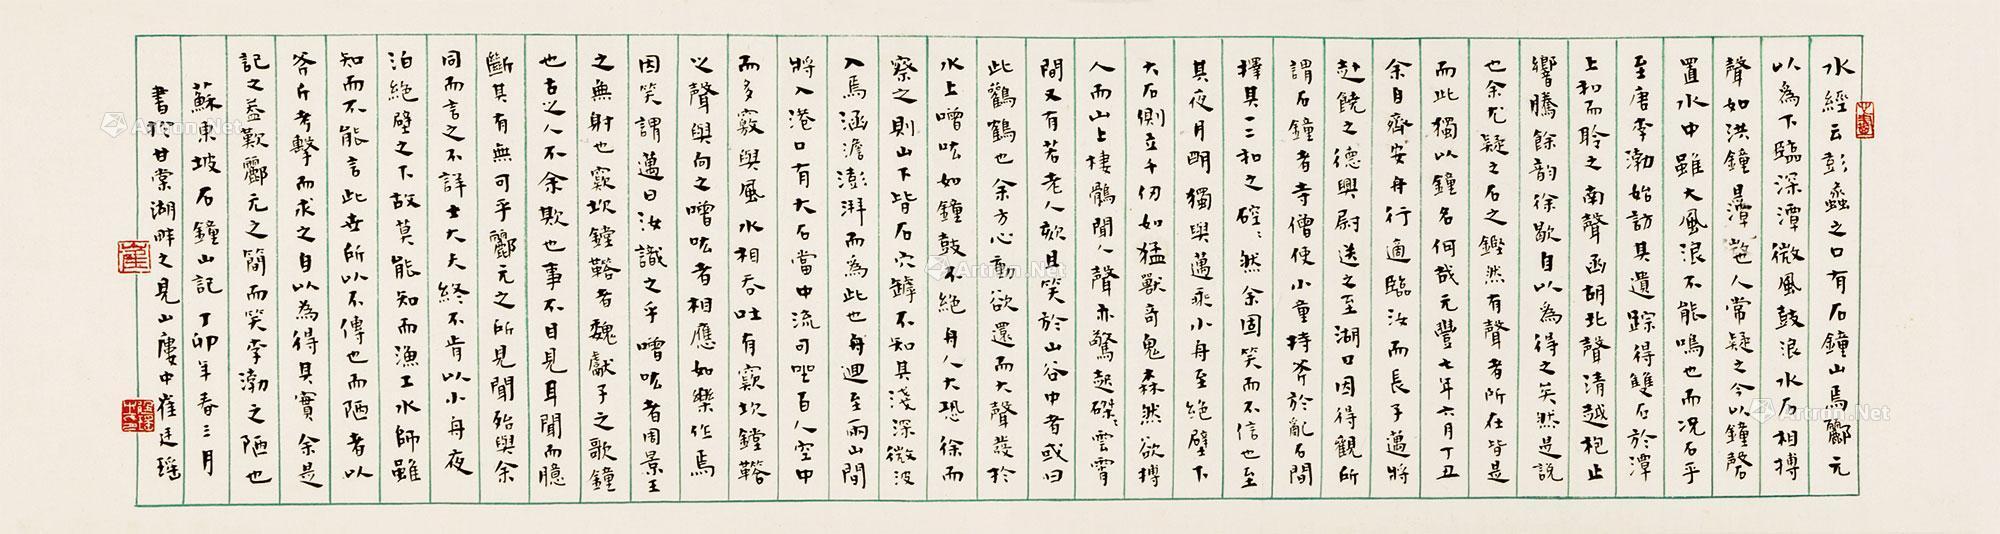 水經云彭蠡之口有石鐘山焉酈元
以為下臨深潭微風鼓浪水石相搏
聲如洪鐘是說也人常疑之今以鐘磬
置水中雖大風浪不能鳴也而況石乎
至唐李渤始訪其遺踪得雙石於潭
上扣而聆之南聲函胡北聲清越枹止
響騰餘韵徐歇自以為得之矣然是說
也余尤疑之石之鏗然有聲者所在皆是
而此獨以鐘名何哉元豐七年六月丁丑
余自齊安舟行適臨汝而長子邁將
赴饒之德興尉送之至湖口因得觀所
謂石鐘者寺僧使小童持斧於亂石間
擇其一二扣之硿硿然余固笑而不信也至
其夜月明獨與邁乘小舟至絕壁下
大石側立千仞如猛獸奇鬼森然欲搏
人而山上棲鶻聞人聲亦驚起磔磔雲霄
間又有若老人欬且笑於山谷中者或曰
此鸛鶴也余方心動欲還而大聲發於
水上噌吰如鐘鼓不絕舟人大恐徐而
察之則山下皆石穴罅不知其淺深微波
入焉涵澹澎湃而為此也舟迴至兩山間
將入港口有大石當中流可坐百人空中
而多竅與風水相吞吐有窾坎鏜鞳
之聲與向之噌吰者相應如樂作焉
因笑謂邁曰汝識之乎噌吰者周景王
之無射也窾坎鏜鞳者魏獻子之歌鐘
也古之人不余欺也事不目見耳聞而臆
斷其有無可乎酈元之所見聞殆與余
同而言之不詳士大夫終不肯以小舟夜
泊絕壁之下故莫能知而漁工水師雖
知而不能言此世所以不傳也而陋者以
斧斤考擊而求之自以為得其實余是
記之蓋歎酈元之簡而笑李渤之陋也
蘇東坡石鐘山記丁卯年春三月
書於甘棠湖畔之見山廔中崔廷瑤